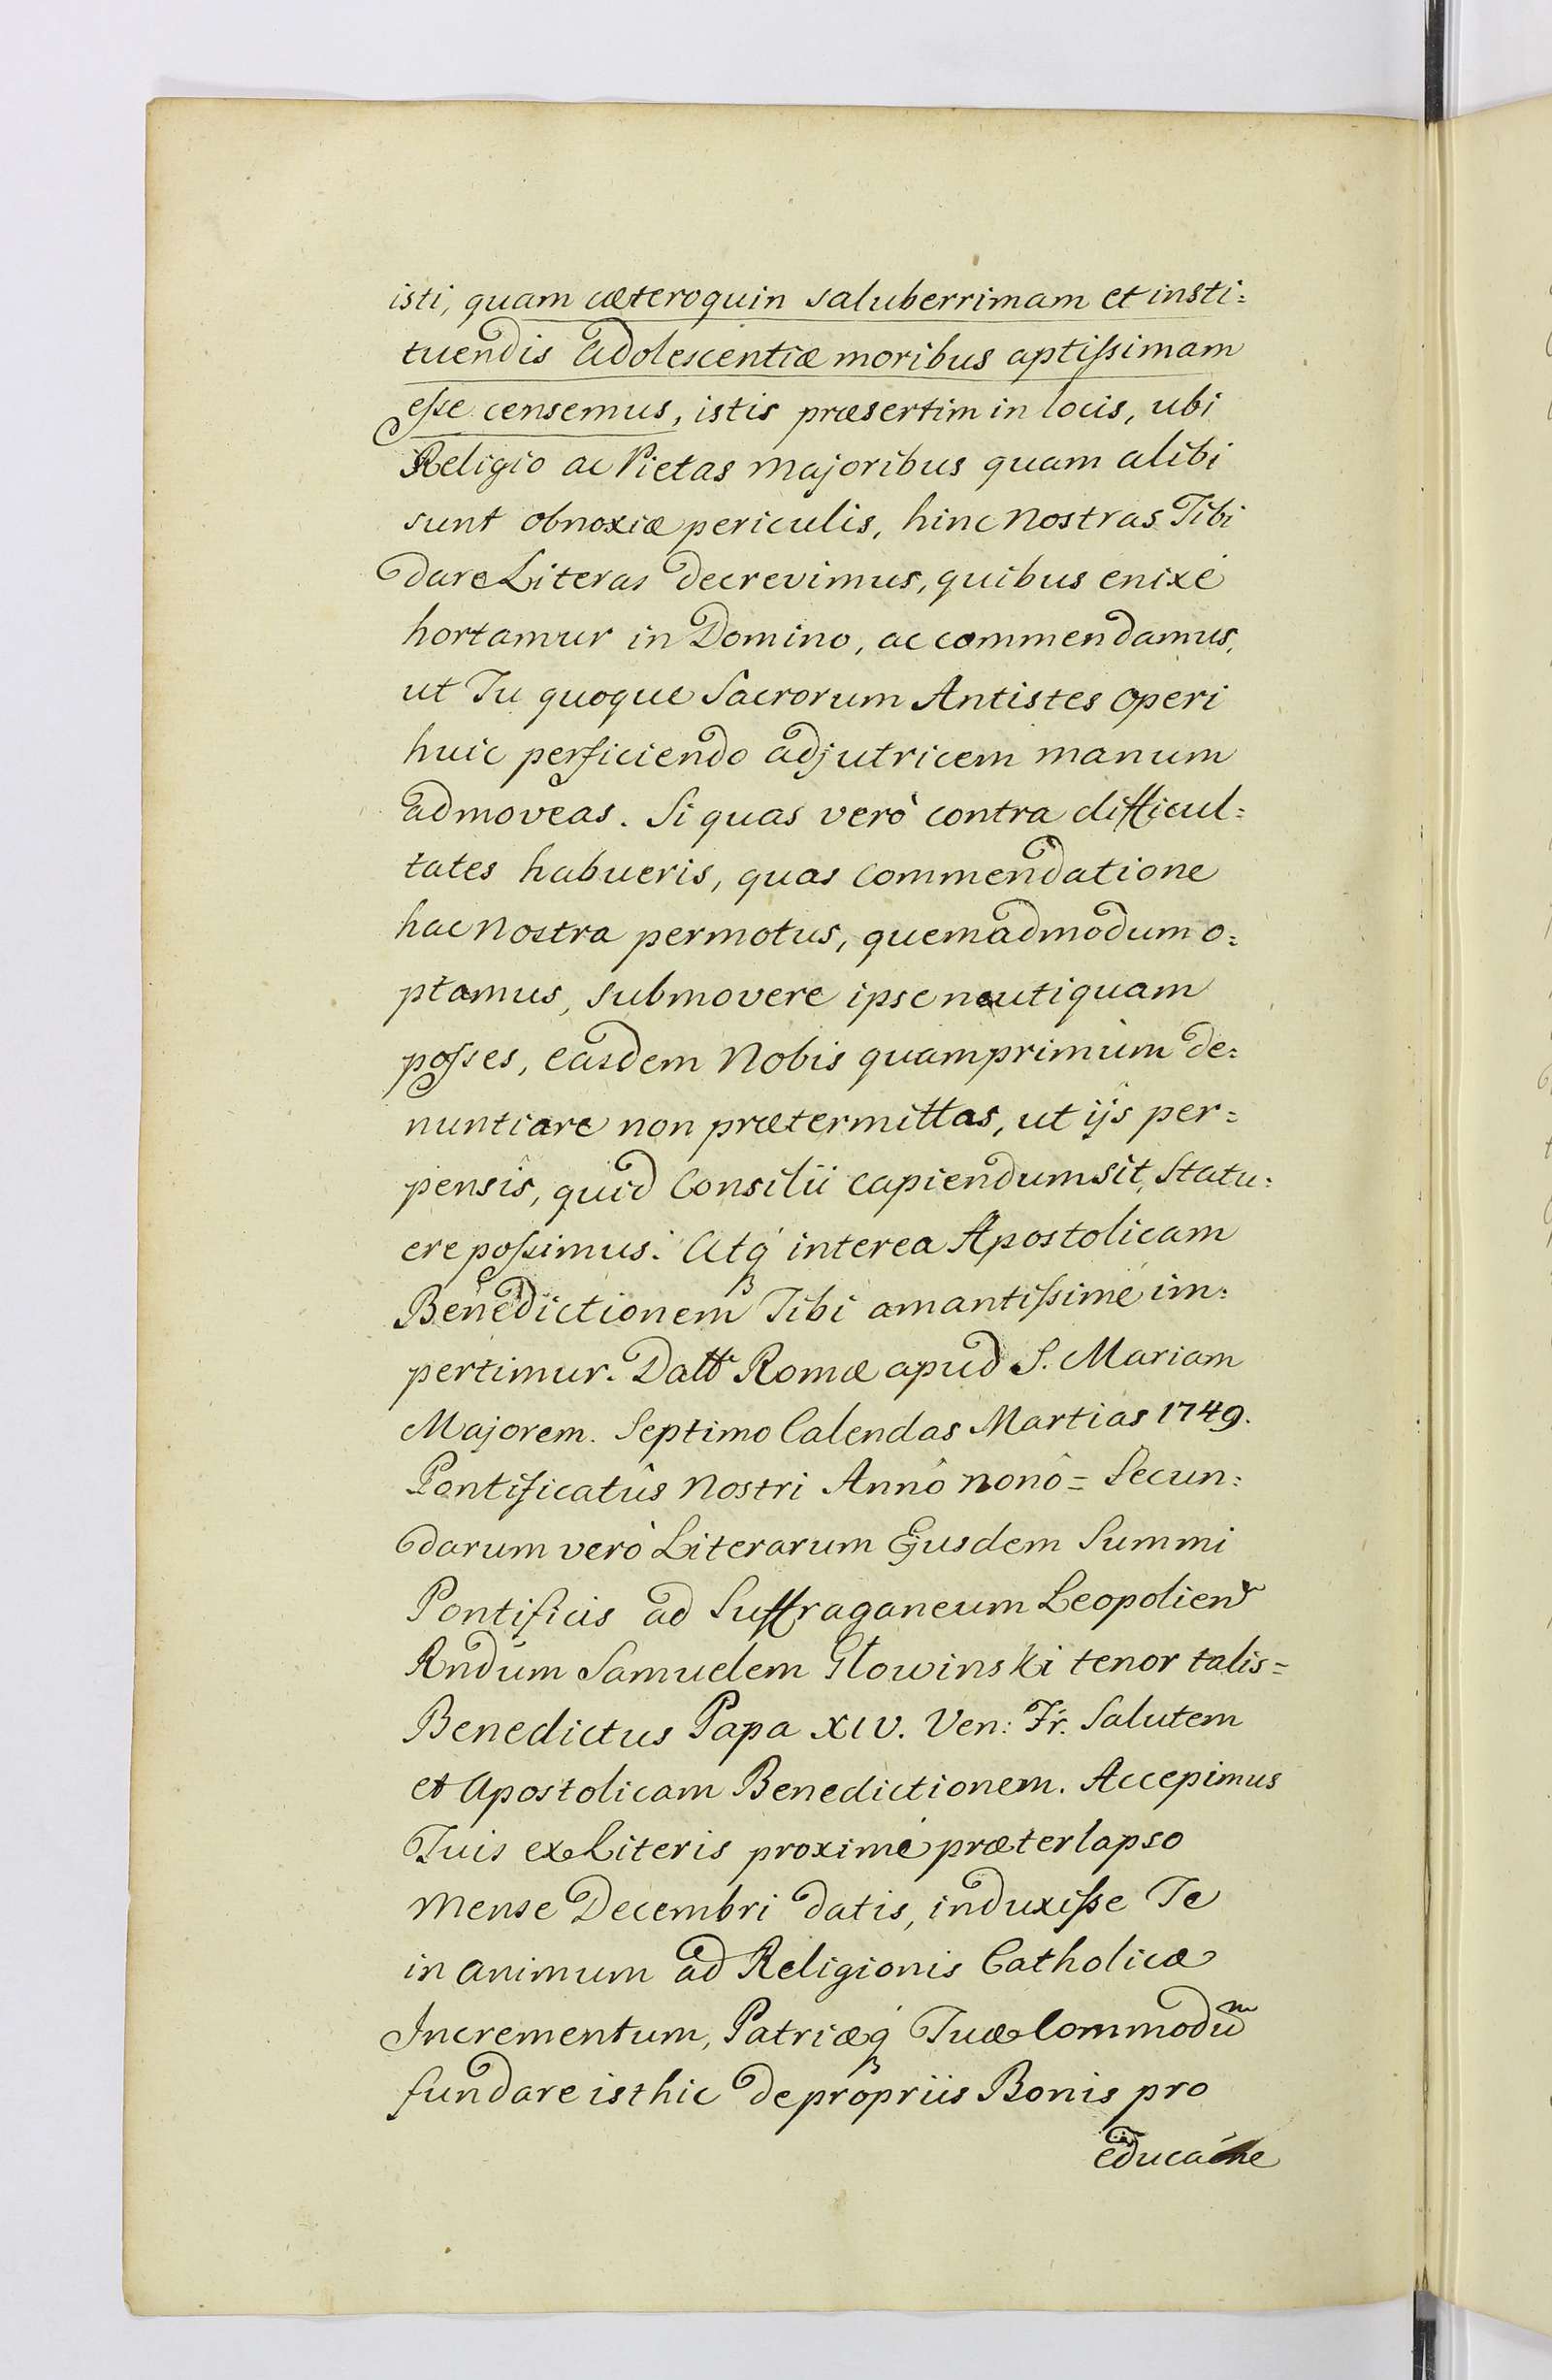 isti, quam cæteroquin saluberrimam et insti=
tuendis adolescentiæ moribus aptissimam
esse censemus, istis præsertim in locis, ubi
Religio ac Pietas majoribus quam alibi
sunt obnoxiæ periculis, hinc nostras Tibi
dare Literas decrevimus, quibus enixè
hortamur in Domino, ac commendamus,
ut Tu quoque Sacrorum Antistes operi
huic perficiendo adjutricem manum
admoveas. Si quas verò contra difficul=
tates habueris, quas commendatione
hac nostra permotus, quemadmodum o=
ptamus, submovere ipse neutiquam
posses, easdem Nobis quamprimùm de=
nuntiare non prætermittas, ut ijs per=
pensîs, quid Consilii capiendum sit, statu=
ere possimus. Atq́ interea Apostolicam
Benedictionem Tibi amantissimè im=
pertimur. Datt Romæ apud S. Mariam
Majorem. Septimo Calendas Martias 1749.
Pontificatûs Nostri Annô nonô = Secun=
darum verò Literarum Ejusdem Summi
Pontificis ad Suffraganeum Leopolien
Rndum Samuelem Głowinski tenor talis=
Benedictus Papa XIV. Ven: Fr. Salutem
et Apostolicam Benedictionem. Accepimus
Tuis ex Literis proximè præterlapso
Mense Decembri datis, induxisse Te
in animum ad Religionis Catholicæ
Incrementum, Patriæq́ Tuæ Commodũ
fundare isthic de propriis Bonis pro